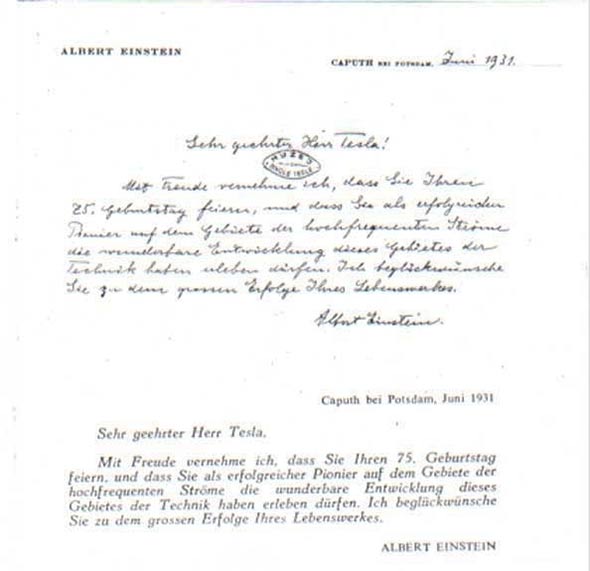 ALBERT EINSTEIN
CAPUTH BEI POTSDAM, Juni 1931.
Sehr geehrter Herr Tesla!
MUZEJ NIKOLE TESLE
Mit Freude vernehme ich, dass Sie Ihren
75. Geburtstag feiern, und dass Sie als erfolgreicher
Pionier auf dem Gebiete der hochfrequenten Ströme
die wunderbare Entwicklung dieses Gebietes der
Technik haben erleben dürfen. Ich beglückwünsche
Sie zu dem grossen Erfolge Ihres Lebenswerkes.
Albert Einstein.
Caputh bei Potsdam, Juni 1931
Sehr geehrter Herr Tesla,
Mit Freude vernehme ich, dass Sie Ihren 75. Geburtstag
feiern, und dass Sie als erfolgreicher Pionier auf dem Gebiete der
hochfrequenten Ströme die wunderbare Entwicklung dieses
Gebietes der Technik haben erleben dürfen. Ich beglückwünsche
Sie zu dem grossen Erfolge Ihres Lebenswerkes.
ALBERT EINSTEIN